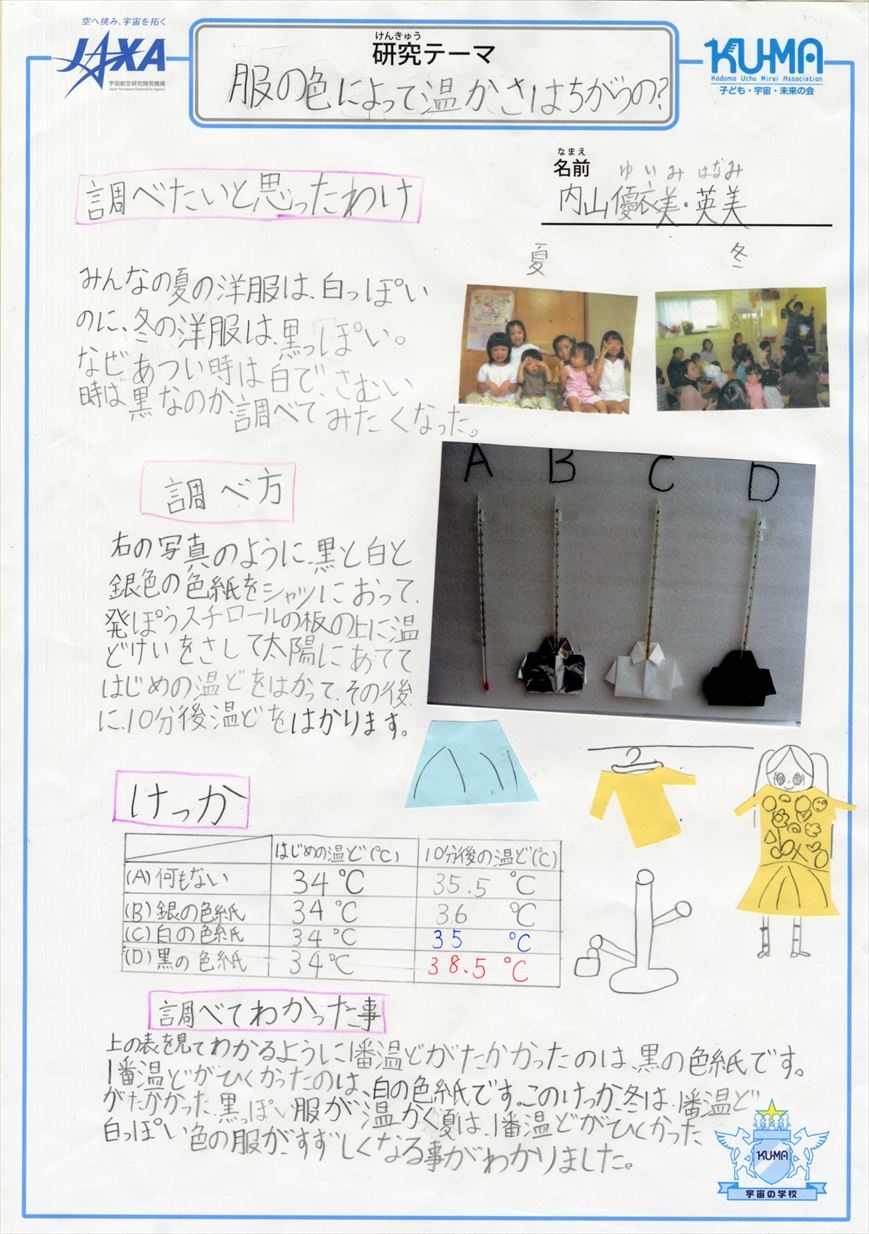 空へ挑み、宇宙を拓く
JAXA
宇宙航空研究開発機構
Japan Aerospace Exploration Agency
けんきゅう
研究テーマ
服の色によって温かさはちがうの?
KU-MA
Kodomo Uchu Mirai Association
子ども・宇宙・未来の会
なまえ
名前
ゆいみ はなみ
内山優衣美・英美
調べたいと思ったわけ
みんなの夏の洋服は、白っぽい
のに、冬の洋服は、黒っぽい。
なぜあつい時は白で、さむい
時は黒なのか調べてみたくなった。
夏
冬
調べ方
右の写真のように、黒と白と
銀色の色紙をシャツにおって、
発ぽうスチロールの板の上に温
どけいをさして太陽にあてて
はじめの温どをはかって、その後
に、10分後温どをはかります。
A B C D
けっか
はじめの温ど(℃) 10分後の温ど(℃)
(A)何もない 34℃ 35.5℃
(B)銀の色紙 34℃ 36℃
(C)白の色紙 34℃ 35℃
(D)黒の色紙 34℃ 38.5℃
調べてわかった事
上の表を見てわかるように1番温どがたかかったのは、黒の色紙です。
1番温どがひくかったのは、白の色紙です。このけっか、冬は、1番温ど
がたかかった黒っぽい服が温かく夏は、1番温どがひくかった
白っぽい色の服が、すずしくなる事がわかりました。
KU-MA
宇宙の学校